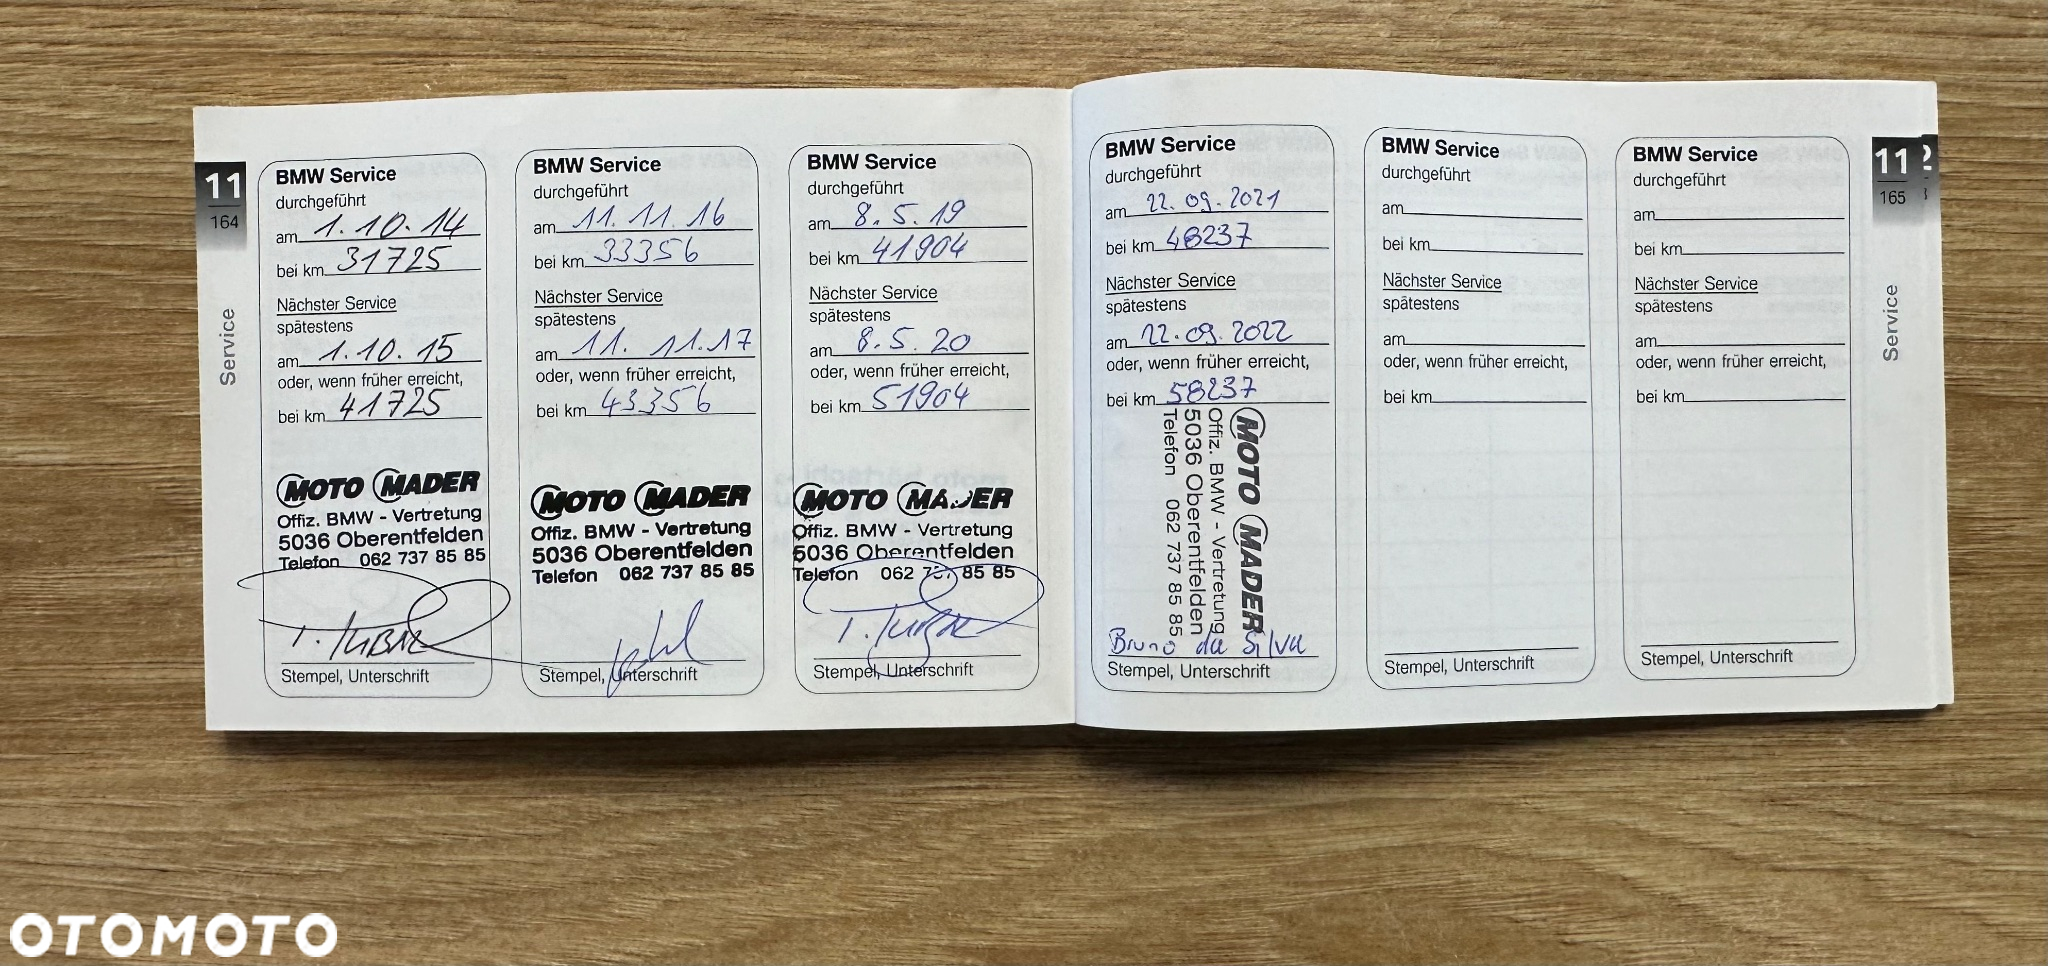 11
164
Service
BMW Service
durchgeführt
am 1.10.14
bei km 31725
Nächster Service
spätestens
am 1.10.15
oder, wenn früher erreicht,
bei km 41725
MOTO MADER
Offiz. BMW - Vertretung
5036 Oberentfelden
Telefon 062 737 85 85
Stempel, Unterschrift
BMW Service
durchgeführt
am 11.11.16
bei km 33356
Nächster Service
spätestens
am 11.11.17
oder, wenn früher erreicht,
bei km 43356
MOTO MADER
Offiz. BMW - Vertretung
5036 Oberentfelden
Telefon 062 737 85 85
Stempel, Unterschrift
BMW Service
durchgeführt
am 8.5.19
bei km 41904
Nächster Service
spätestens
am 8.5.20
oder, wenn früher erreicht,
bei km 51904
MOTO MADER
Offiz. BMW - Vertretung
5036 Oberentfelden
Telefon 062 737 85 85
Stempel, Unterschrift
BMW Service
durchgeführt
am 22.09.2021
bei km 48237
Nächster Service
spätestens
am 22.09.2022
oder, wenn früher erreicht,
bei km 58237
MOTO MADER
Offiz. BMW - Vertretung
5036 Oberentfelden
Telefon 062 737 85 85
Bruno da Silva
Stempel, Unterschrift
BMW Service
durchgeführt
am
bei km
Nächster Service
spätestens
am
oder, wenn früher erreicht,
bei km
Stempel, Unterschrift
BMW Service
durchgeführt
am
bei km
Nächster Service
spätestens
am
oder, wenn früher erreicht,
bei km
Stempel, Unterschrift
11
165
Service
OTOMOTO